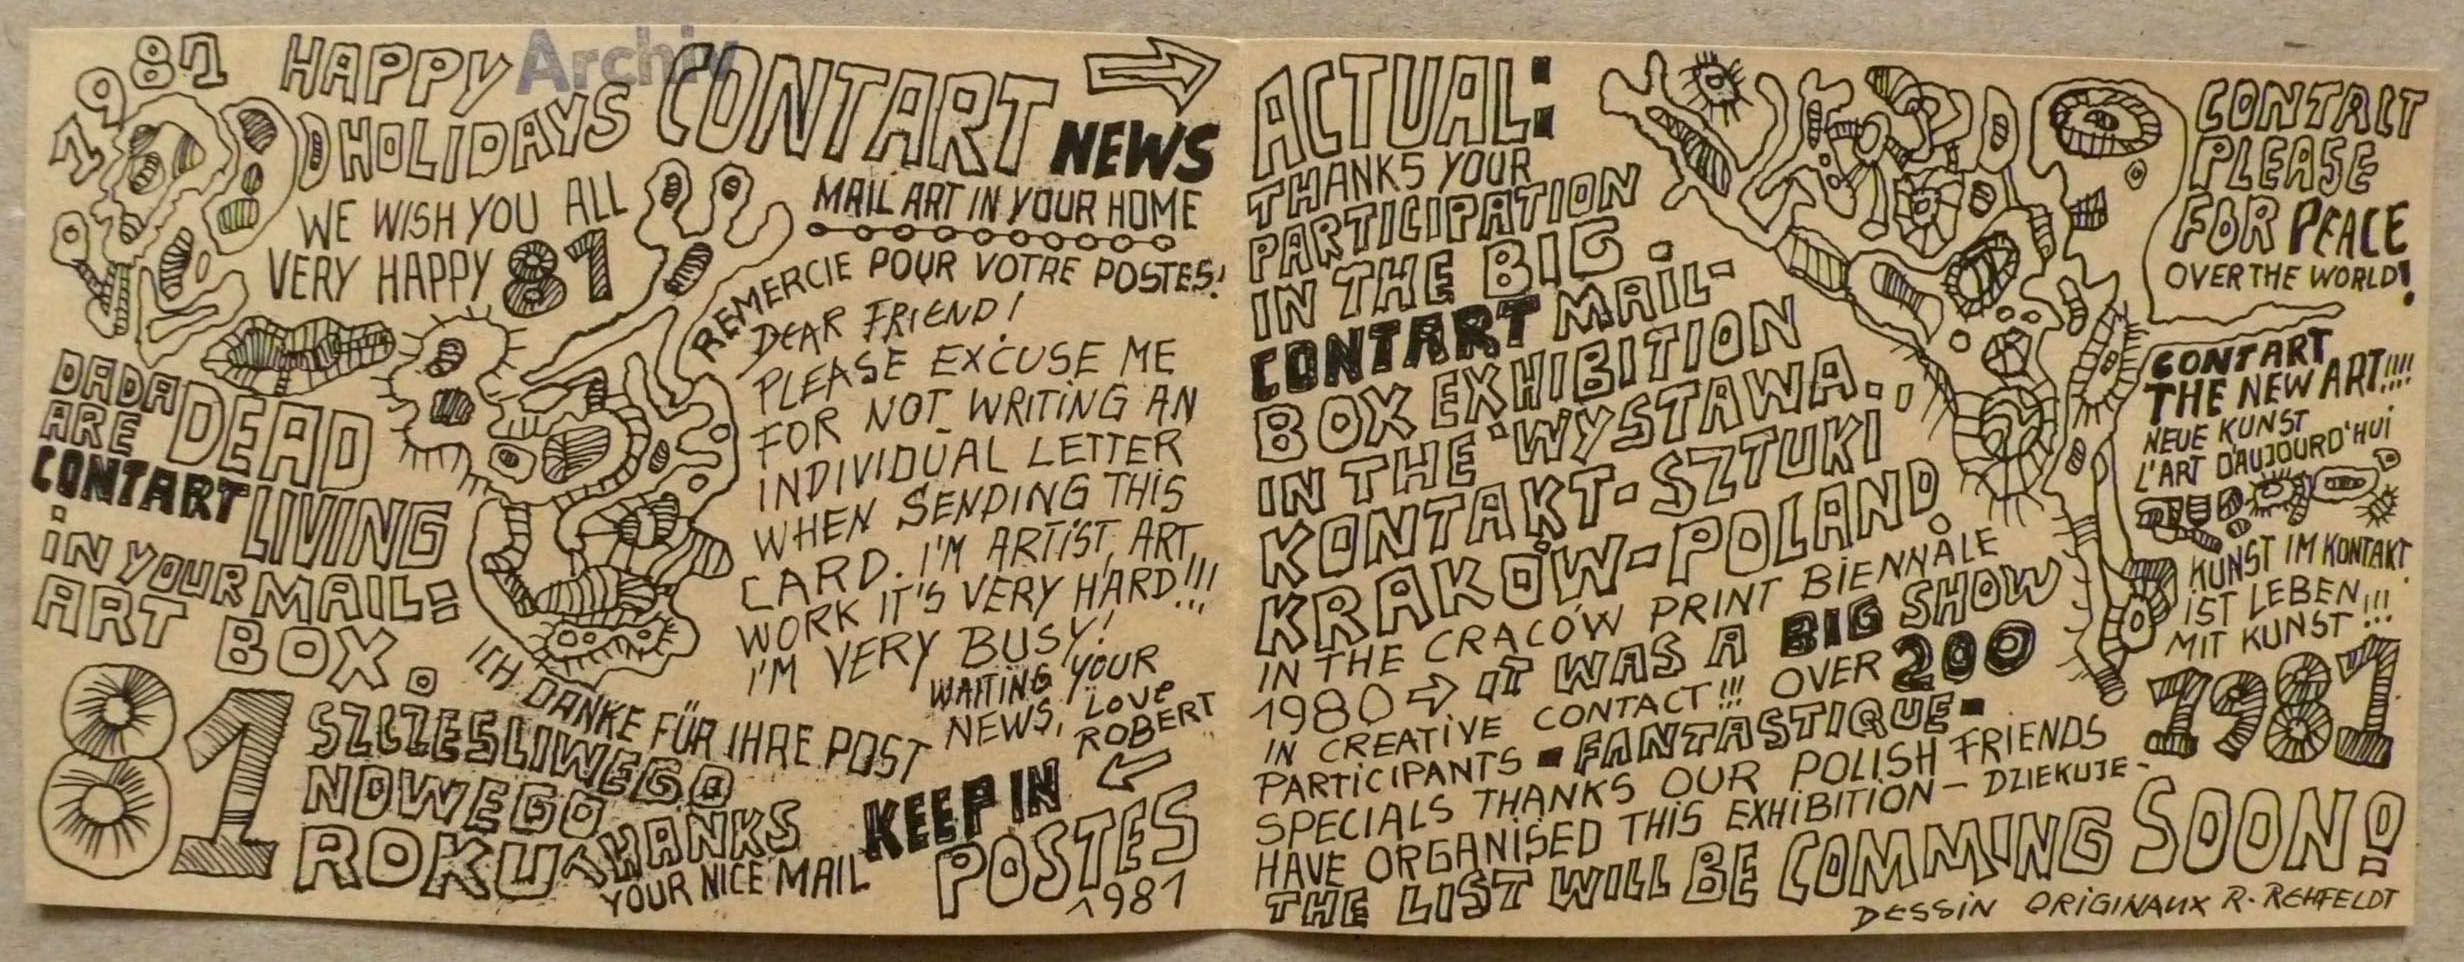 1981
HAPPY
HOLIDAYS
Archiv
CONTART
NEWS
WE WISH YOU ALL
VERY HAPPY 81
MAIL ART IN YOUR HOME
REMERCIE POUR VOTRE POSTES!
DEAR FRIEND!
PLEASE EXCUSE ME
FOR NOT WRITING AN
INDIVIDUAL LETTER
WHEN SENDING THIS
CARD. I'M ARTIST, ART
WORK IT'S VERY HARD!!!
I'M VERY BUSY!
WAITING YOUR
NEWS, LOVE
ROBERT
DADA
ARE DEAD
CONTART LIVING
IN YOUR MAIL=
ART BOX.
ICH DANKE FÜR IHRE POST
81
SZCZESLIWEGO
NOWEGO
ROKU
THANKS
YOUR NICE MAIL
KEEP IN
POSTES
1981
ACTUAL:
THANKS YOUR
PARTICIPATION
IN THE BIG
CONTART MAIL-
BOX EXHIBITION
IN THE "WYSTAWA..
KONTAKT-SZTUKI"
KRAKÓW-POLAND.
IN THE CRACÓW PRINT BIENNALE
1980 ⇨ IT WAS A BIG SHOW
IN CREATIVE CONTACT!!! OVER 200
PARTICIPANTS - FANTASTIQUE-
SPECIALS THANKS OUR POLISH FRIENDS
HAVE ORGANISED THIS EXHIBITION - DZIEKUJE-
THE LIST WILL BE COMMING SOON!
DESSIN ORIGINAUX R. REHFELDT
CONTACT
PLEASE
FOR PEACE
OVER THE WORLD!
CONTART
THE NEW ART!!!!
NEUE KUNST
L'ART D'AUJOURD'HUI
KUNST IM KONTAKT
IST LEBEN
MIT KUNST!!!
1981